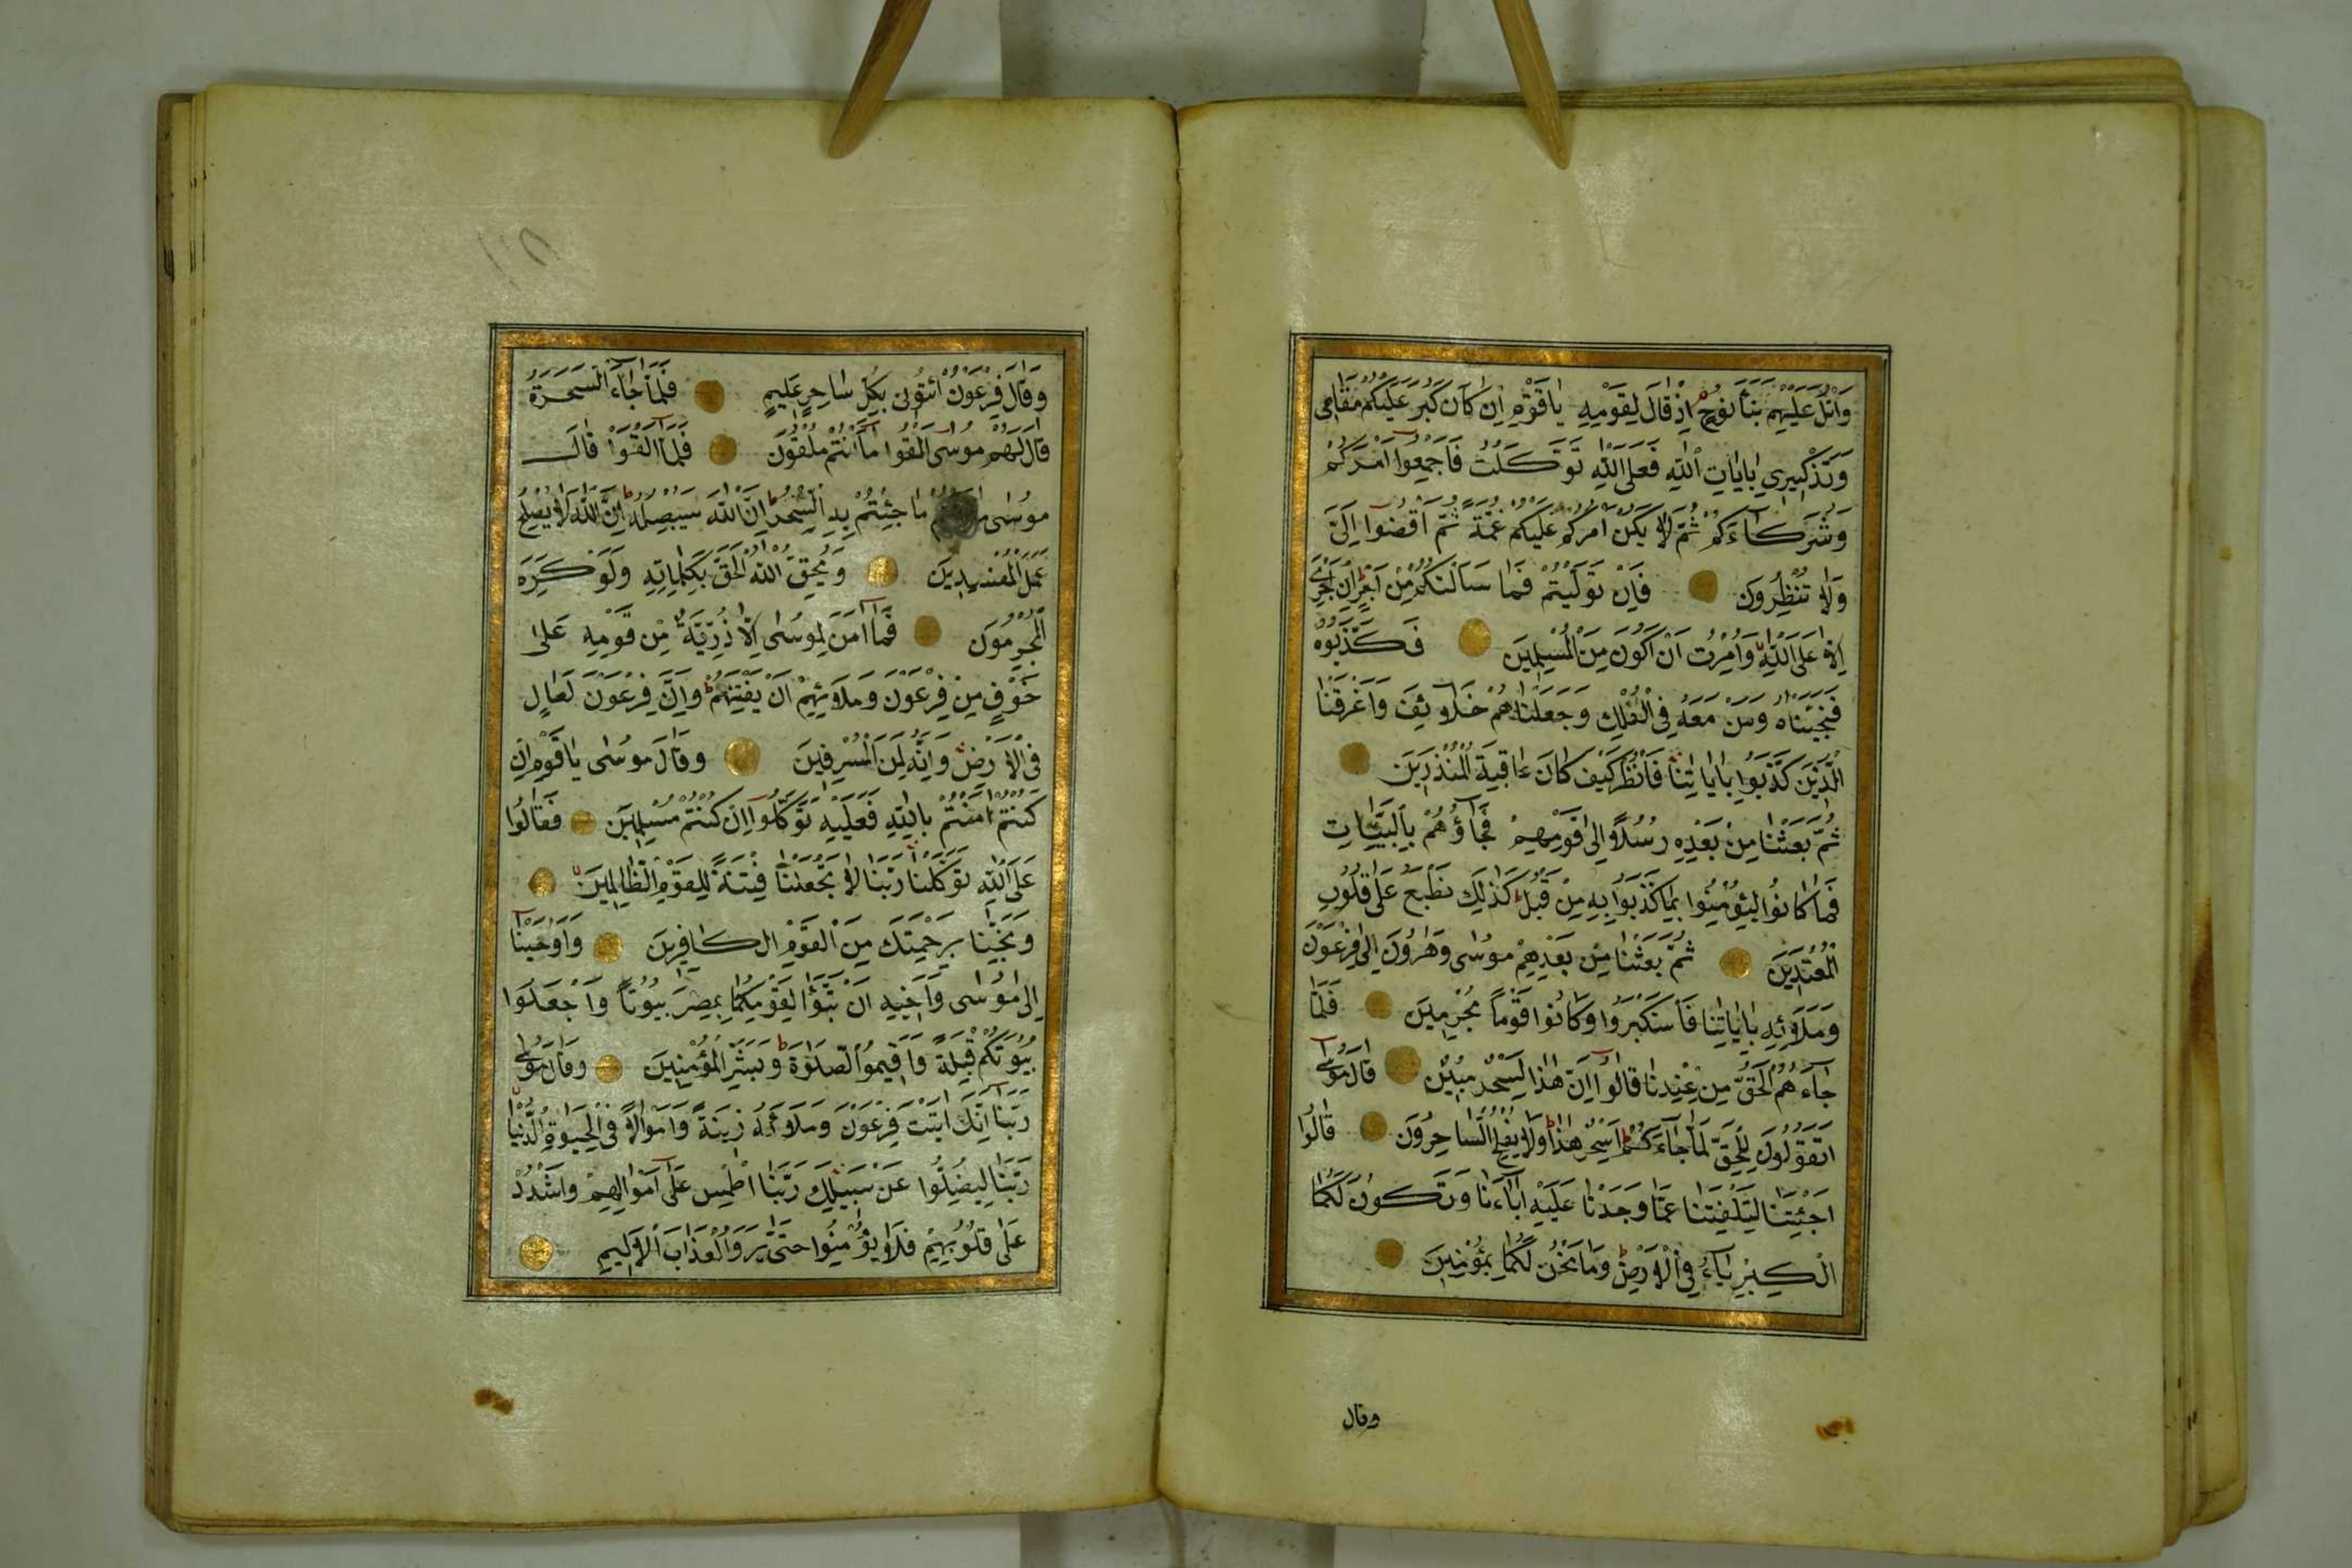 وَاتْلُ عَلَيْهِمْ نَبَأَ نُوحٍ اِذْ قَالَ لِقَوْمِهِ يَاقَوْمِ اِنْ كَانَ كَبُرَ عَلَيْكُمْ مَقَامِى
وَتَذْكِيرِي بِاٰيَاتِ اللّٰهِ فَعَلَى اللّٰهِ تَوَكَّلْتُ فَاَجْمِعُوا اَمْرَكُمْ
وَشُرَكَاءَكُمْ ثُمَّ لَا يَكُنْ اَمْرُكُمْ عَلَيْكُمْ غُمَّةً ثُمَّ اقْضُوا اِلَىَّ
وَلَا تُنْظِرُونِ فَاِنْ تَوَلَّيْتُمْ فَمَا سَاَلْتُكُمْ مِنْ اَجْرٍ اِنْ اَجْرِىَ
اِلَّا عَلَى اللّٰهِ وَاُمِرْتُ اَنْ اَكُونَ مِنَ الْمُسْلِمِينَ فَكَذَّبُوهُ
فَنَجَّيْنَاهُ وَمَنْ مَعَهُ فِى الْفُلْكِ وَجَعَلْنَاهُمْ خَلَائِفَ وَاَغْرَقْنَا
الَّذِينَ كَذَّبُوا بِاٰيَاتِنَا فَانْظُرْ كَيْفَ كَانَ عَاقِبَةُ الْمُنْذَرِينَ
ثُمَّ بَعَثْنَا مِنْ بَعْدِهِ رُسُلًا اِلٰى قَوْمِهِمْ فَجَاؤُهُمْ بِالْبَيِّنَاتِ
فَمَا كَانُوا لِيُؤْمِنُوا بِمَا كَذَّبُوا بِهِ مِنْ قَبْلُ كَذٰلِكَ نَطْبَعُ عَلٰى قُلُوبِ
الْمُعْتَدِينَ ثُمَّ بَعَثْنَا مِنْ بَعْدِهِمْ مُوسٰى وَهٰرُونَ اِلٰى فِرْعَوْنَ
وَمَلَائِهِ بِاٰيَاتِنَا فَاسْتَكْبَرُوا وَكَانُوا قَوْمًا مُجْرِمِينَ فَلَمَّا
جَاءَهُمُ الْحَقُّ مِنْ عِنْدِنَا قَالُوا اِنَّ هٰذَا لَسِحْرٌ مُبِينٌ قَالَ مُوسٰى
اَتَقُولُونَ لِلْحَقِّ لَمَّا جَاءَكُمْ اَسِحْرٌ هٰذَا وَلَا يُفْلِحُ السَّاحِرُونَ قَالُوا
اَجِئْتَنَا لِتَلْفِتَنَا عَمَّا وَجَدْنَا عَلَيْهِ اٰبَاءَنَا وَتَكُونَ لَكُمَا
الْكِبْرِيَاءُ فِى الْاَرْضِ وَمَا نَحْنُ لَكُمَا بِمُؤْمِنِينَ
وقال
وَقَالَ فِرْعَوْنُ ائْتُونِى بِكُلِّ سَاحِرٍ عَلِيمٍ فَلَمَّا جَاءَ السَّحَرَةُ
قَالَ لَهُمْ مُوسٰى اَلْقُوا مَا اَنْتُمْ مُلْقُونَ فَلَمَّا اَلْقَوْا قَالَ
مُوسٰى مَا جِئْتُمْ بِهِ السِّحْرُ اِنَّ اللّٰهَ سَيُبْطِلُهُ اِنَّ اللّٰهَ لَا يُصْلِحُ
عَمَلَ الْمُفْسِدِينَ وَيُحِقُّ اللّٰهُ الْحَقَّ بِكَلِمَاتِهِ وَلَوْ كَرِهَ
الْمُجْرِمُونَ فَمَا اٰمَنَ لِمُوسٰى اِلَّا ذُرِّيَّةٌ مِنْ قَوْمِهِ عَلٰى
خَوْفٍ مِنْ فِرْعَوْنَ وَمَلَائِهِمْ اَنْ يَفْتِنَهُمْ وَاِنَّ فِرْعَوْنَ لَعَالٍ
فِى الْاَرْضِ وَاِنَّهُ لَمِنَ الْمُسْرِفِينَ وَقَالَ مُوسٰى يَاقَوْمِ اِنْ
كُنْتُمْ اٰمَنْتُمْ بِاللّٰهِ فَعَلَيْهِ تَوَكَّلُوا اِنْ كُنْتُمْ مُسْلِمِينَ فَقَالُوا
عَلَى اللّٰهِ تَوَكَّلْنَا رَبَّنَا لَا تَجْعَلْنَا فِتْنَةً لِلْقَوْمِ الظَّالِمِينَ
وَنَجِّنَا بِرَحْمَتِكَ مِنَ الْقَوْمِ الْكَافِرِينَ وَاَوْحَيْنَا
اِلٰى مُوسٰى وَاَخِيهِ اَنْ تَبَوَّاٰ لِقَوْمِكُمَا بِمِصْرَ بُيُوتًا وَاجْعَلُوا
بُيُوتَكُمْ قِبْلَةً وَاَقِيمُوا الصَّلٰوةَ وَبَشِّرِ الْمُؤْمِنِينَ وَقَالَ مُوسٰى
رَبَّنَا اِنَّكَ اٰتَيْتَ فِرْعَوْنَ وَمَلَاَهُ زِينَةً وَاَمْوَالًا فِى الْحَيٰوةِ الدُّنْيَا
رَبَّنَا لِيُضِلُّوا عَنْ سَبِيلِكَ رَبَّنَا اطْمِسْ عَلٰى اَمْوَالِهِمْ وَاشْدُدْ
عَلٰى قُلُوبِهِمْ فَلَا يُؤْمِنُوا حَتّٰى يَرَوُا الْعَذَابَ الْاَلِيمَ